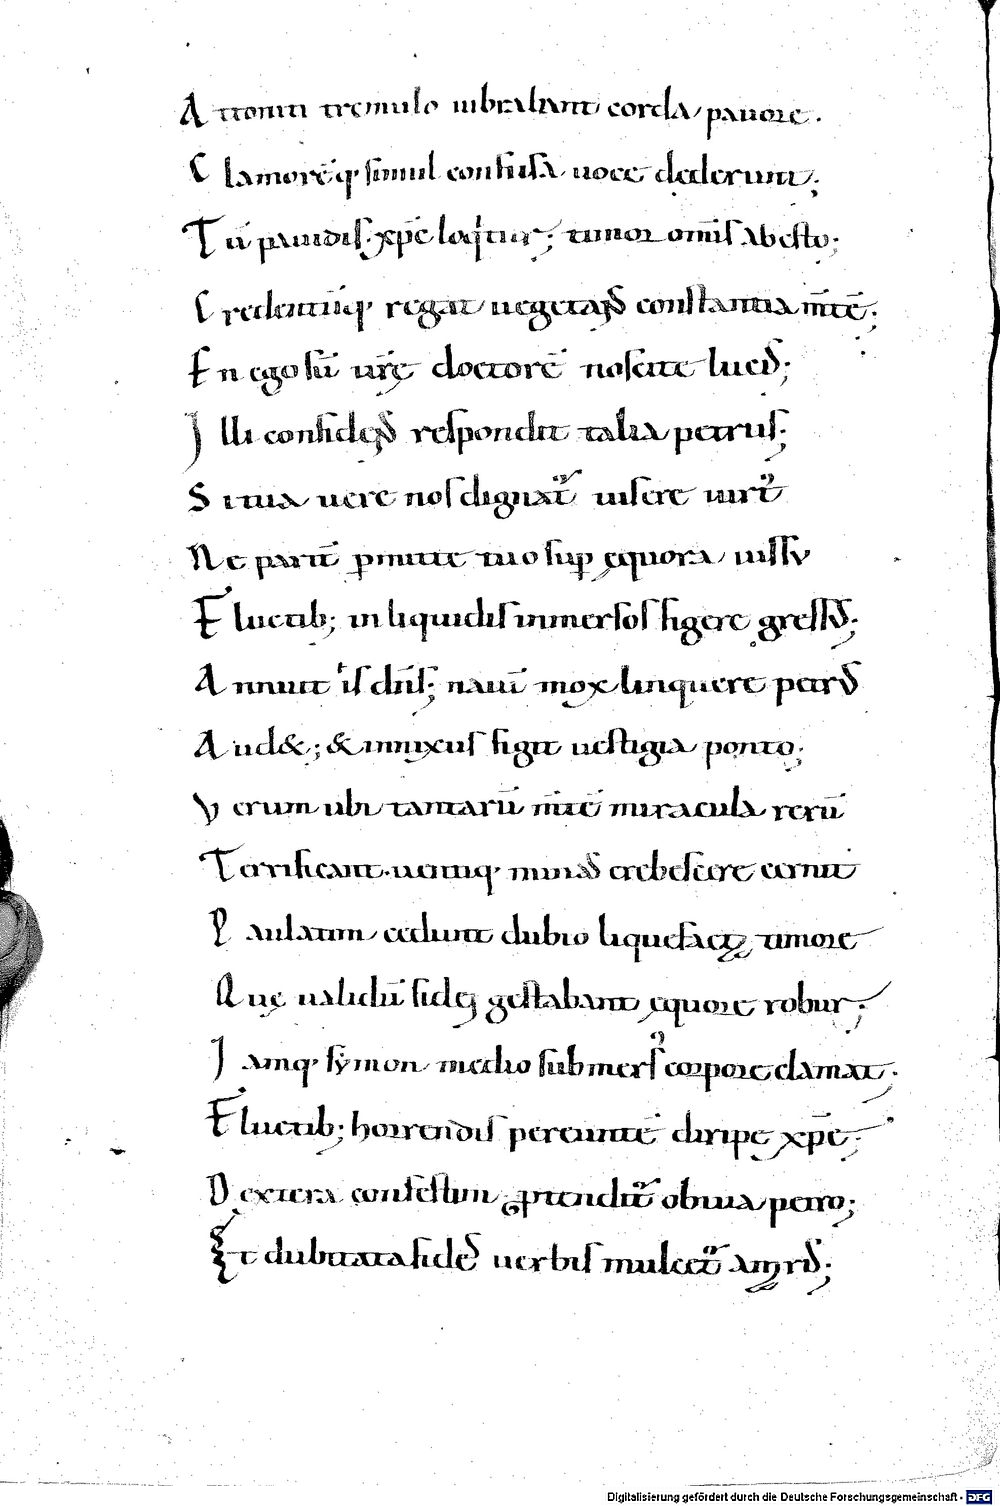 Attoniti tremulo uibrabant corda pauore.
Clamorēq; simul confusa uoce dederunt;
Tū pauidis. xp̄c loq̇tur; timor om̄is abesto;
Credentūq; regat uegetans constantia m̄tē;
En ego sū ur̄ę doctorē noscite lucis;
Illi confidens respondit talia petrus;
Si tua uere nos dignat᷑ uisere uirt᷑
Me partū p̄mitte tuo sup ęquora iussu
Fluctib; in liquidis inmersos figere gressus;
Annuit is dn̄s; nauī mox linquere petrus
Aud&; & innixus figit uestigia ponto;
Verum ubi tantarū m̄tē miracula rerū
Terrificant. uentiq; minas crebescere cernit
Paulatim cedunt dubio liquefacta timore
Quę ualidū fidei gestabant ęquore robur;
Iamq; symon medio submers᷒ corpore clamat;
Fluctib; horrendis pereuntē diripe xp̄e;
Dextera confestim p̄tendit᷑ obuia petro;
Et dubitata fides uerbis mulcet᷑ amaris;